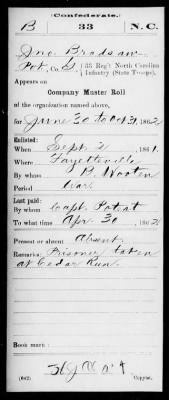 Confederate.
B 33 N.C.
Jno Bradsaw
Pvt, Co. G, 33 Reg't North Carolina
Infantry (State Troops).
Appears on
Company Muster Roll
of the organization named above,
for June 30 to Oct 31, 1862
Enlisted:
When Sept 2, 1861.
Where Fayetteville
By whom B. Wooten
Period War
Last paid:
By whom Capt. Poteat
To what time Apr. 30, 1862
Present or absent Absent.
Remarks: Prisoner taken
at Cedar Run.
Book mark:
(642)
Copyist.